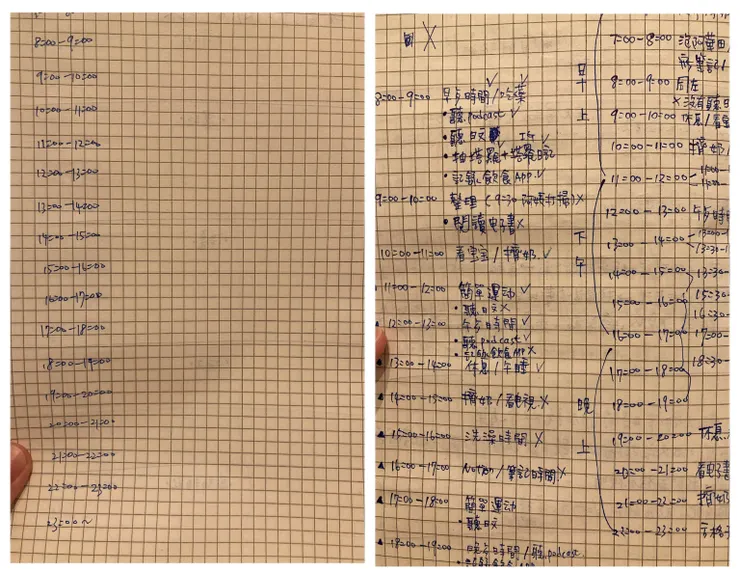 8:00-9:00
9:00-10:00
10:00-11:00
11:00-12:00
12:00-13:00
13:00-14:00
14:00-15:00
15:00-16:00
16:00-17:00
17:00-18:00
18:00-19:00
19:00-20:00
20:00-21:00
21:00-22:00
22:00-23:00
23:00~
8:00-9:00 早歺時間/吃藥
•聽podcast ✓
•聽日文 ✓
•抽塔羅+塔羅日記
•記錄飲食APP ✓
9:00-10:00 整理(9:30阿姨打掃)X
•閱讀电子書X
10:00-11:00 看宝宝/擠奶 ✓
11:00-12:00 簡單运动 ✓
•聽日文X
12:00-13:00 午歺時間 ✓
•聽podcast ✓
•記錄飲食APP X
13:00-14:00 休息/午睡 ✓
14:00-15:00 擠奶/看電視 X
15:00-16:00 洗澡時間 X
16:00-17:00 Notion/筆記時間X
17:00-18:00 簡單运动
•聽日文
18:00-19:00 晚歺時間/聽podcast
早上
下午
晚上
7:00-8:00
8:00-9:00 同左
X沒有聽日
9:00-10:00 休息/看宝
10:00-11:00 擠奶/
11:00-12:00
12:00-13:00 午歺時
13:00-14:00
14:00-15:00 13:30-
15:00-16:00 15:30-
16:30-
16:00-17:00 17:00-
17:00-18:00 18:30-
18:00-19:00
19:00-20:00 休息
20:00-21:00 看电子
21:00-22:00 擠奶
22:00-23:00